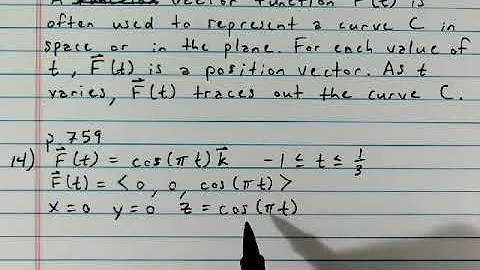 A vector function F⃗(t) is
often used to represent a curve C in
space or in the plane. For each value of
t, F⃗(t) is a position vector. As t
varies, F⃗(t) traces out the curve C.
p. 759
14) F⃗(t) = cos(πt) k⃗ -1 ≤ t ≤ 1/3
F⃗(t) = <0, 0, cos(πt)>
x = 0 y = 0 z = cos(πt)